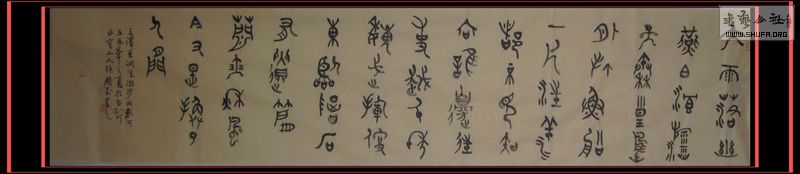 大雨落幽
燕白浪滔
天秦皇島
外打魚船
一片汪洋
都不見知
向誰邊往
事越千年
魏武揮鞭
東臨碣石
有遺篇
蕭瑟秋風
今又是換了
人間
毛澤東詞浪淘沙北戴河
書藝公社
WWW.SHUFA.ORG